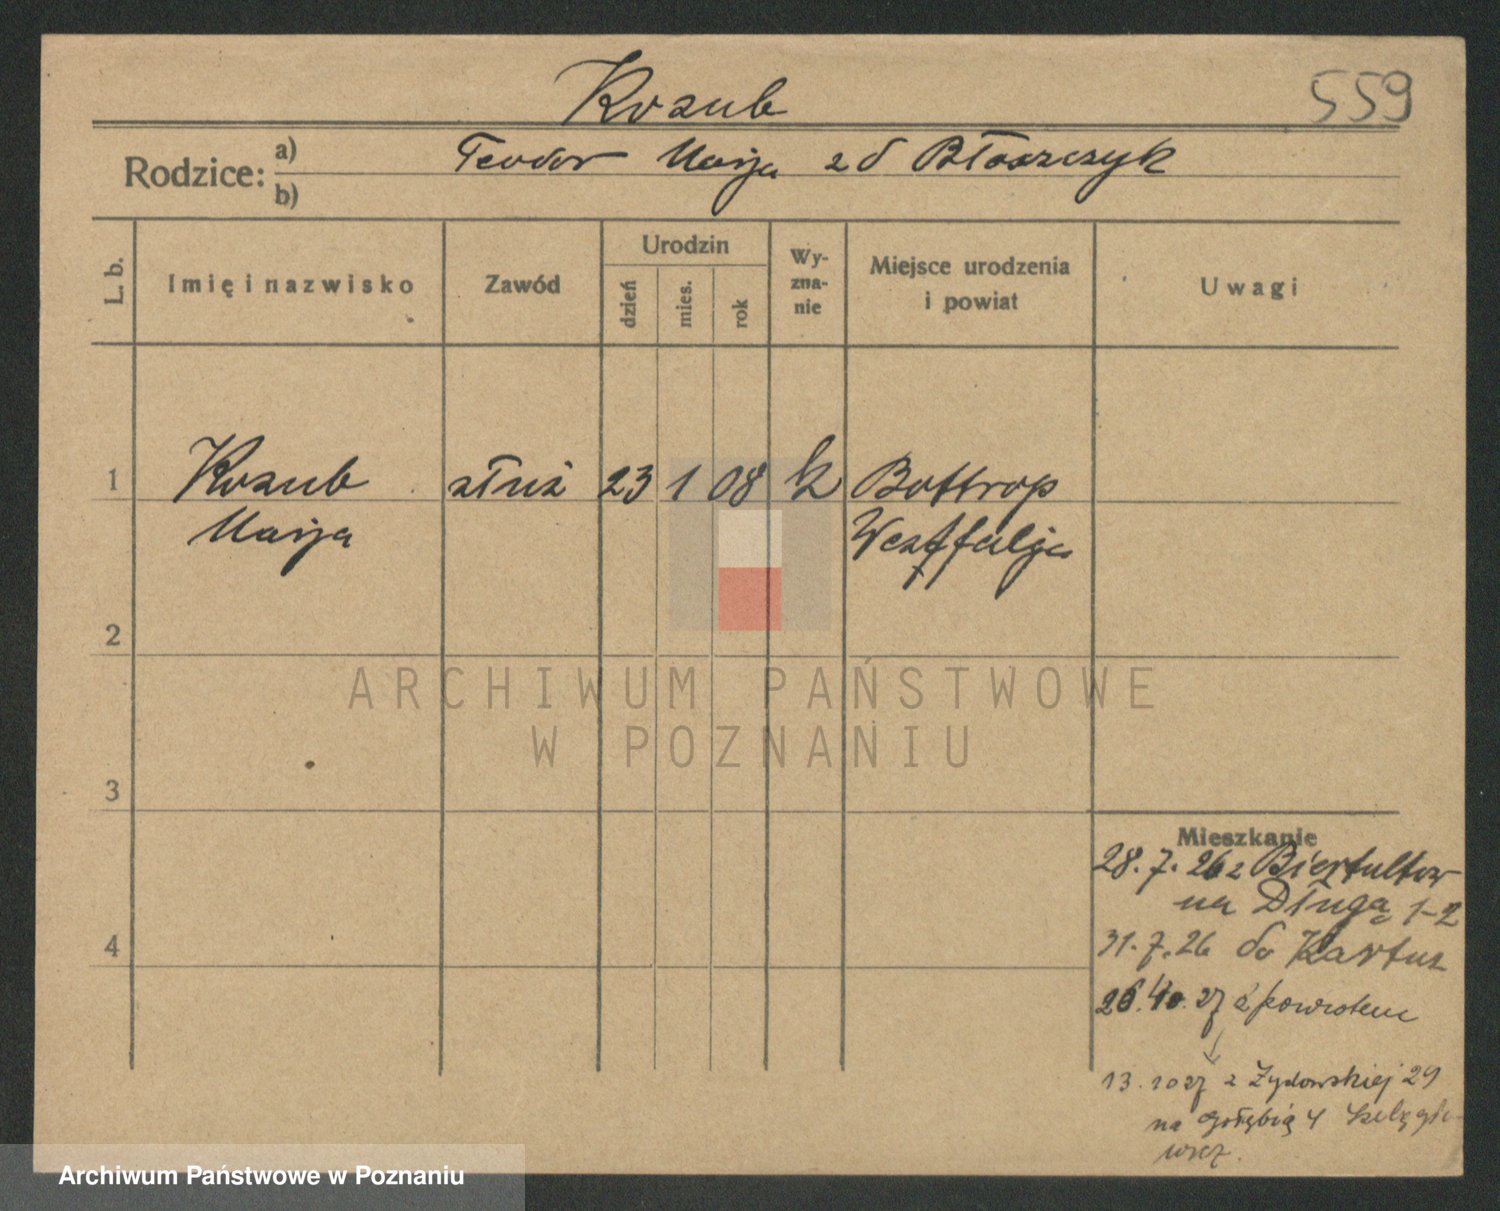 Kozub
559
Rodzice: a) Teodor Marja zd Błaszczyk
b)
L. b. Imię i nazwisko Zawód Urodzin dzień mies. rok Wy-zna-nie Miejsce urodzenia i powiat Uwagi
1 Kozub służ 23 1 08 k Bottrop
Marja Westfalja
2
ARCHIWUM PAŃSTWOWE
W POZNANIU
3
Mieszkanie
28.7.26 z Biertułtow
na Długą 1-2
4 31.7.26 do Kartuz
26.10.27 z powrotem
13.10 27 z Żydowskiej 29
na Gołębią 4
Archiwum Państwowe w Poznaniu